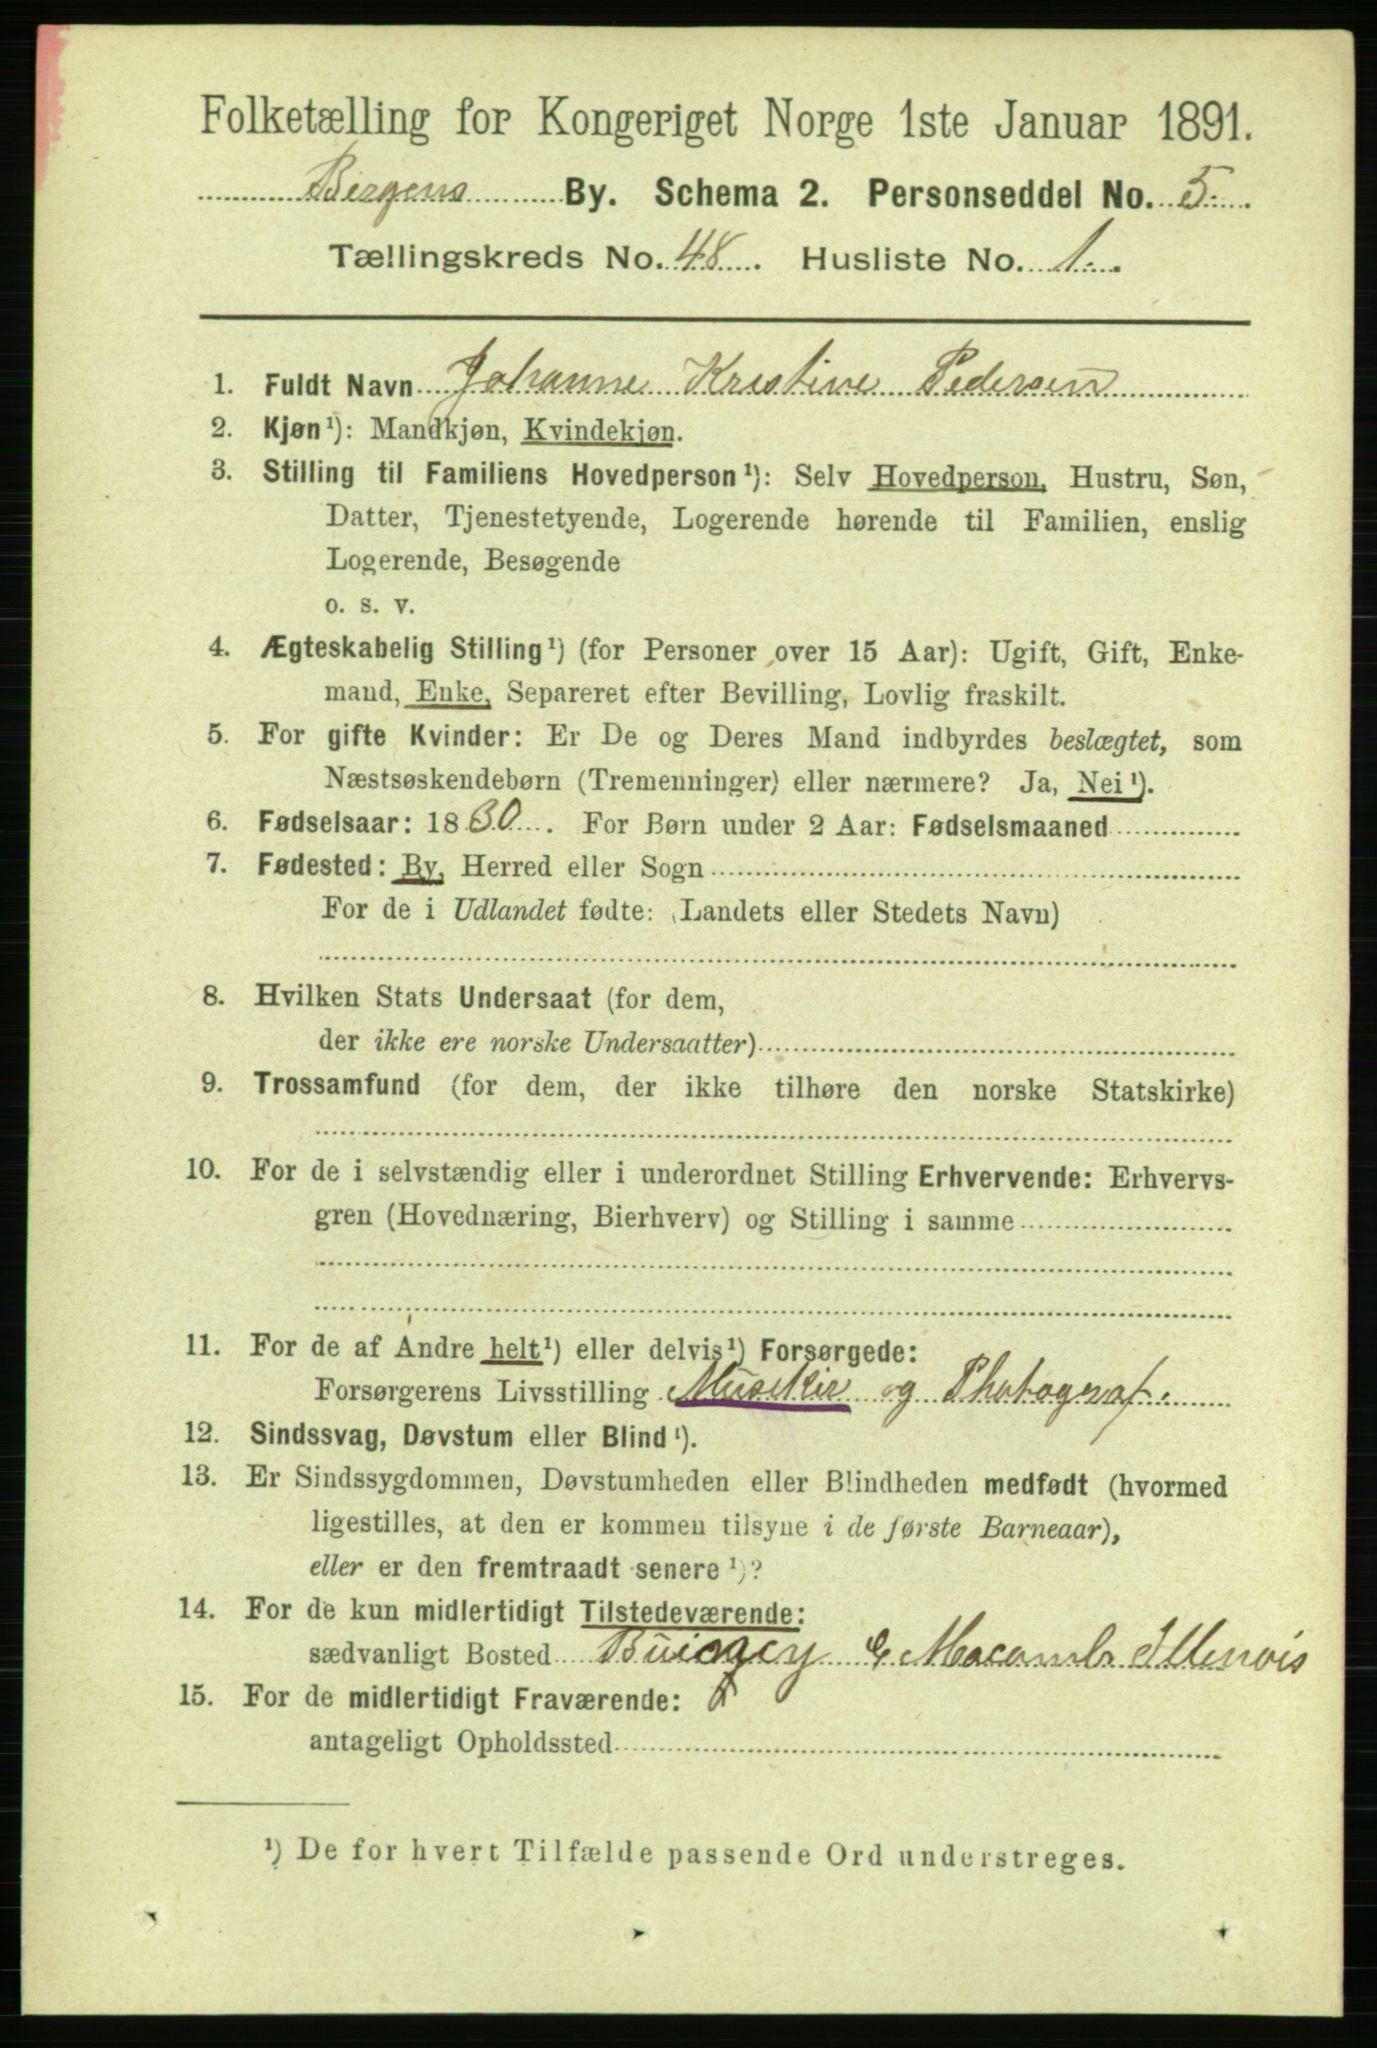 Folketælling for Kongeriget Norge 1ste Januar 1891.
Bergens By. Schema 2. Personseddel No. 5.
Tællingskreds No. 48. Husliste No. 1.
1. Fuldt Navn Johanne Kristine Pedersen
2. Kjøn¹): Mandkjøn, Kvindekjøn.
3. Stilling til Familiens Hovedperson¹): Selv Hovedperson, Hustru, Søn,
Datter, Tjenestetyende, Logerende hørende til Familien, enslig
Logerende, Besøgende
o. s. v.
4. Ægteskabelig Stilling¹) (for Personer over 15 Aar): Ugift, Gift, Enke-
mand, Enke, Separeret efter Bevilling, Lovlig fraskilt.
5. For gifte Kvinder: Er De og Deres Mand indbyrdes beslægtet, som
Næstsøskendebørn (Tremenninger) eller nærmere? Ja, Nei¹).
6. Fødselsaar: 1830. For Børn under 2 Aar: Fødselsmaaned
7. Fødested: By, Herred eller Sogn
For de i Udlandet fødte: (Landets eller Stedets Navn)
8. Hvilken Stats Undersaat (for dem,
der ikke ere norske Undersaatter)
9. Trossamfund (for dem, der ikke tilhøre den norske Statskirke)
10. For de i selvstændig eller i underordnet Stilling Erhvervende: Erhvervs-
gren (Hovednæring, Bierhverv) og Stilling i samme
11. For de af Andre helt¹) eller delvis¹) Forsørgede:
Forsørgerens Livsstilling Musiker og Photograf.
12. Sindssvag, Døvstum eller Blind¹).
13. Er Sindssygdommen, Døvstumheden eller Blindheden medfødt (hvormed
ligestilles, at den er kommen tilsyne i de første Barneaar),
eller er den fremtraadt senere¹)?
14. For de kun midlertidigt Tilstedeværende:
sædvanligt Bosted & Macomb Illenois
15. For de midlertidigt Fraværende:
antageligt Opholdssted
¹) De for hvert Tilfælde passende Ord understreges.